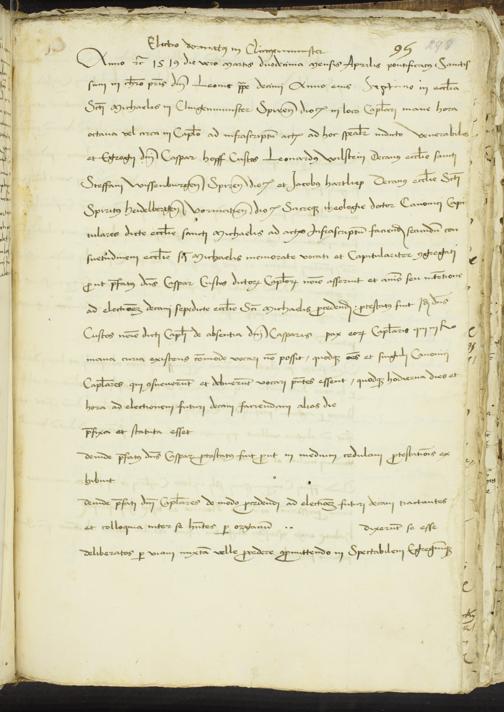 Electio decanatus in Clingenmunster
95 298
Anno etc. 1519 die vero martis duodecima mensis Aprilis pontificatus Sanctis
simi in christo pris dni Leonis ppe decimi Anno eius Septimo in ecclia
Sti Michaelis in Clingenmunster Spiren dioc in loco Caplari mane hora
octava vel circa in Caplo ad infrascriptum actum ad hoc indicto venerabiles
et Egregii dni Caspar hopff Custos Leonardus Decanus ecclie sancti
Steffani Wissenburgen Spiren dioc et Jacobus hartlieb Decanus ecclie Sti
Spiritus heidelbergen Wormatien dioc Sacreque theologie doctor Canonici Capi
tulares dicte ecclie sancti Michaelis ad actum Infrascriptum faciend secundum con
suetudinem ecclie sti Michaelis memorate vocati et Capitulariter congregati
prout prefatus dns Caspar Custos Caplarium nomine asseruit et
ad electionem decani sepedicte ecclie Sti Michaelis procedendi protestatus fuit dns
Custos nomine dicti Capli de absentia dni Casparis
curia existens commode vocari non possit, quodque omnes et singuli Canonici
Caplares qui et debuerunt vocari pntes essent, quodque hodierna dies et
hora ad electionem futuri decani faciendam alias die
prefixa et statuta esset
deinde prefatus dns Caspar protestatus fuit prout in medium cedulam protestationis ex
hibuit
deinde prefati dni Caplares de modo procedendi ad electionem futuri decani tractantes
et colloquia inter se habentes per organum .. dixerunt se esse
deliberatos per viam mixtam velle procedere compromittendo in Spectabilem Egregiumque